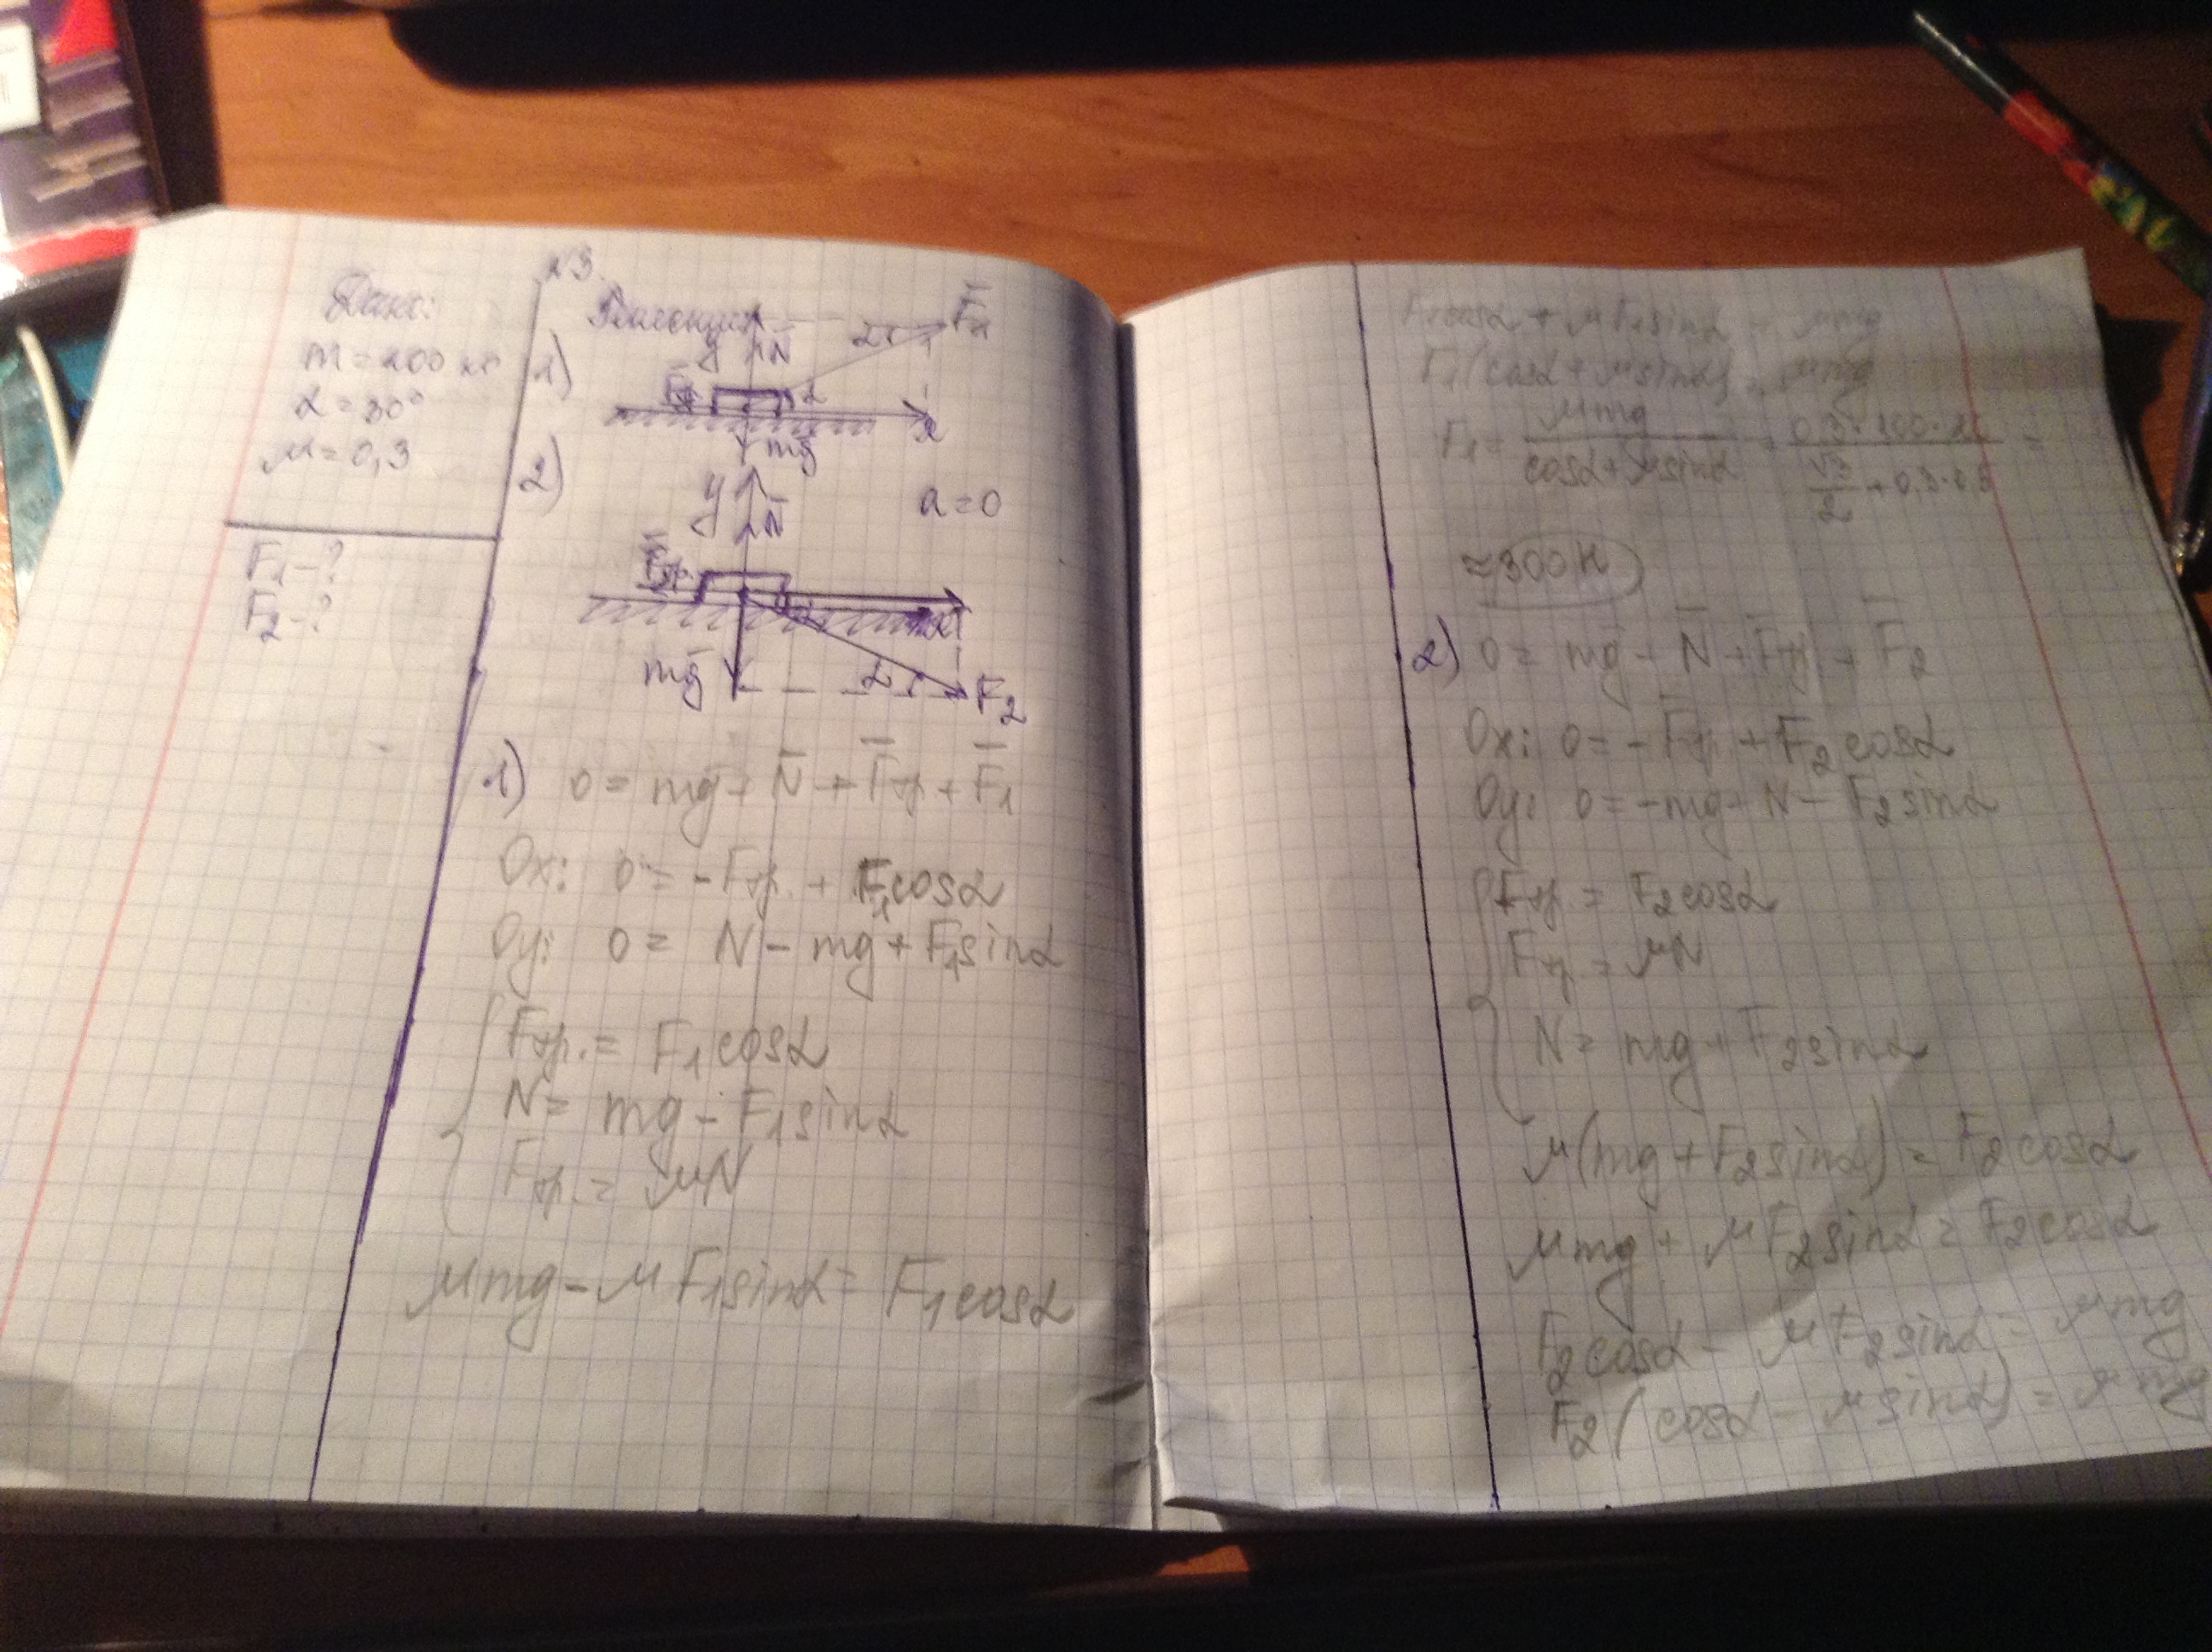 №3.
Дано:
m = 100 кг
α = 30°
μ = 0,3
F₁ - ?
F₂ - ?
1)
y
N̄
F̄₁
α
α
F̄тр
x
mḡ
2)
y
N̄
a = 0
F̄тр.
x
α
mḡ
α
F₂
1) 0 = mḡ + N̄ + F̄тр + F̄₁
Ox: 0 = -Fтр. + F₁cosα
Oy: 0 = N - mg + F₁sinα
Fтр. = F₁cosα
N = mg - F₁sinα
Fтр. = μN
μmg - μF₁sinα = F₁cosα
F₁cosα + μF₁sinα = μmg
F₁(cosα + μsinα) = μmg
F₁ = μmg / (cosα + μsinα) = 0,3·100·10 / (√3/2 + 0,3·0,5) =
≈ 300 Н
2) 0 = mḡ + N̄ + F̄тр. + F̄₂
Ox: 0 = -Fтр. + F₂cosα
Oy: 0 = -mg + N - F₂sinα
Fтр. = F₂cosα
Fтр. = μN
N = mg + F₂sinα
μ(mg + F₂sinα) = F₂cosα
μmg + μF₂sinα = F₂cosα
F₂cosα - μF₂sinα = μmg
F₂(cosα - μsinα) = μmg